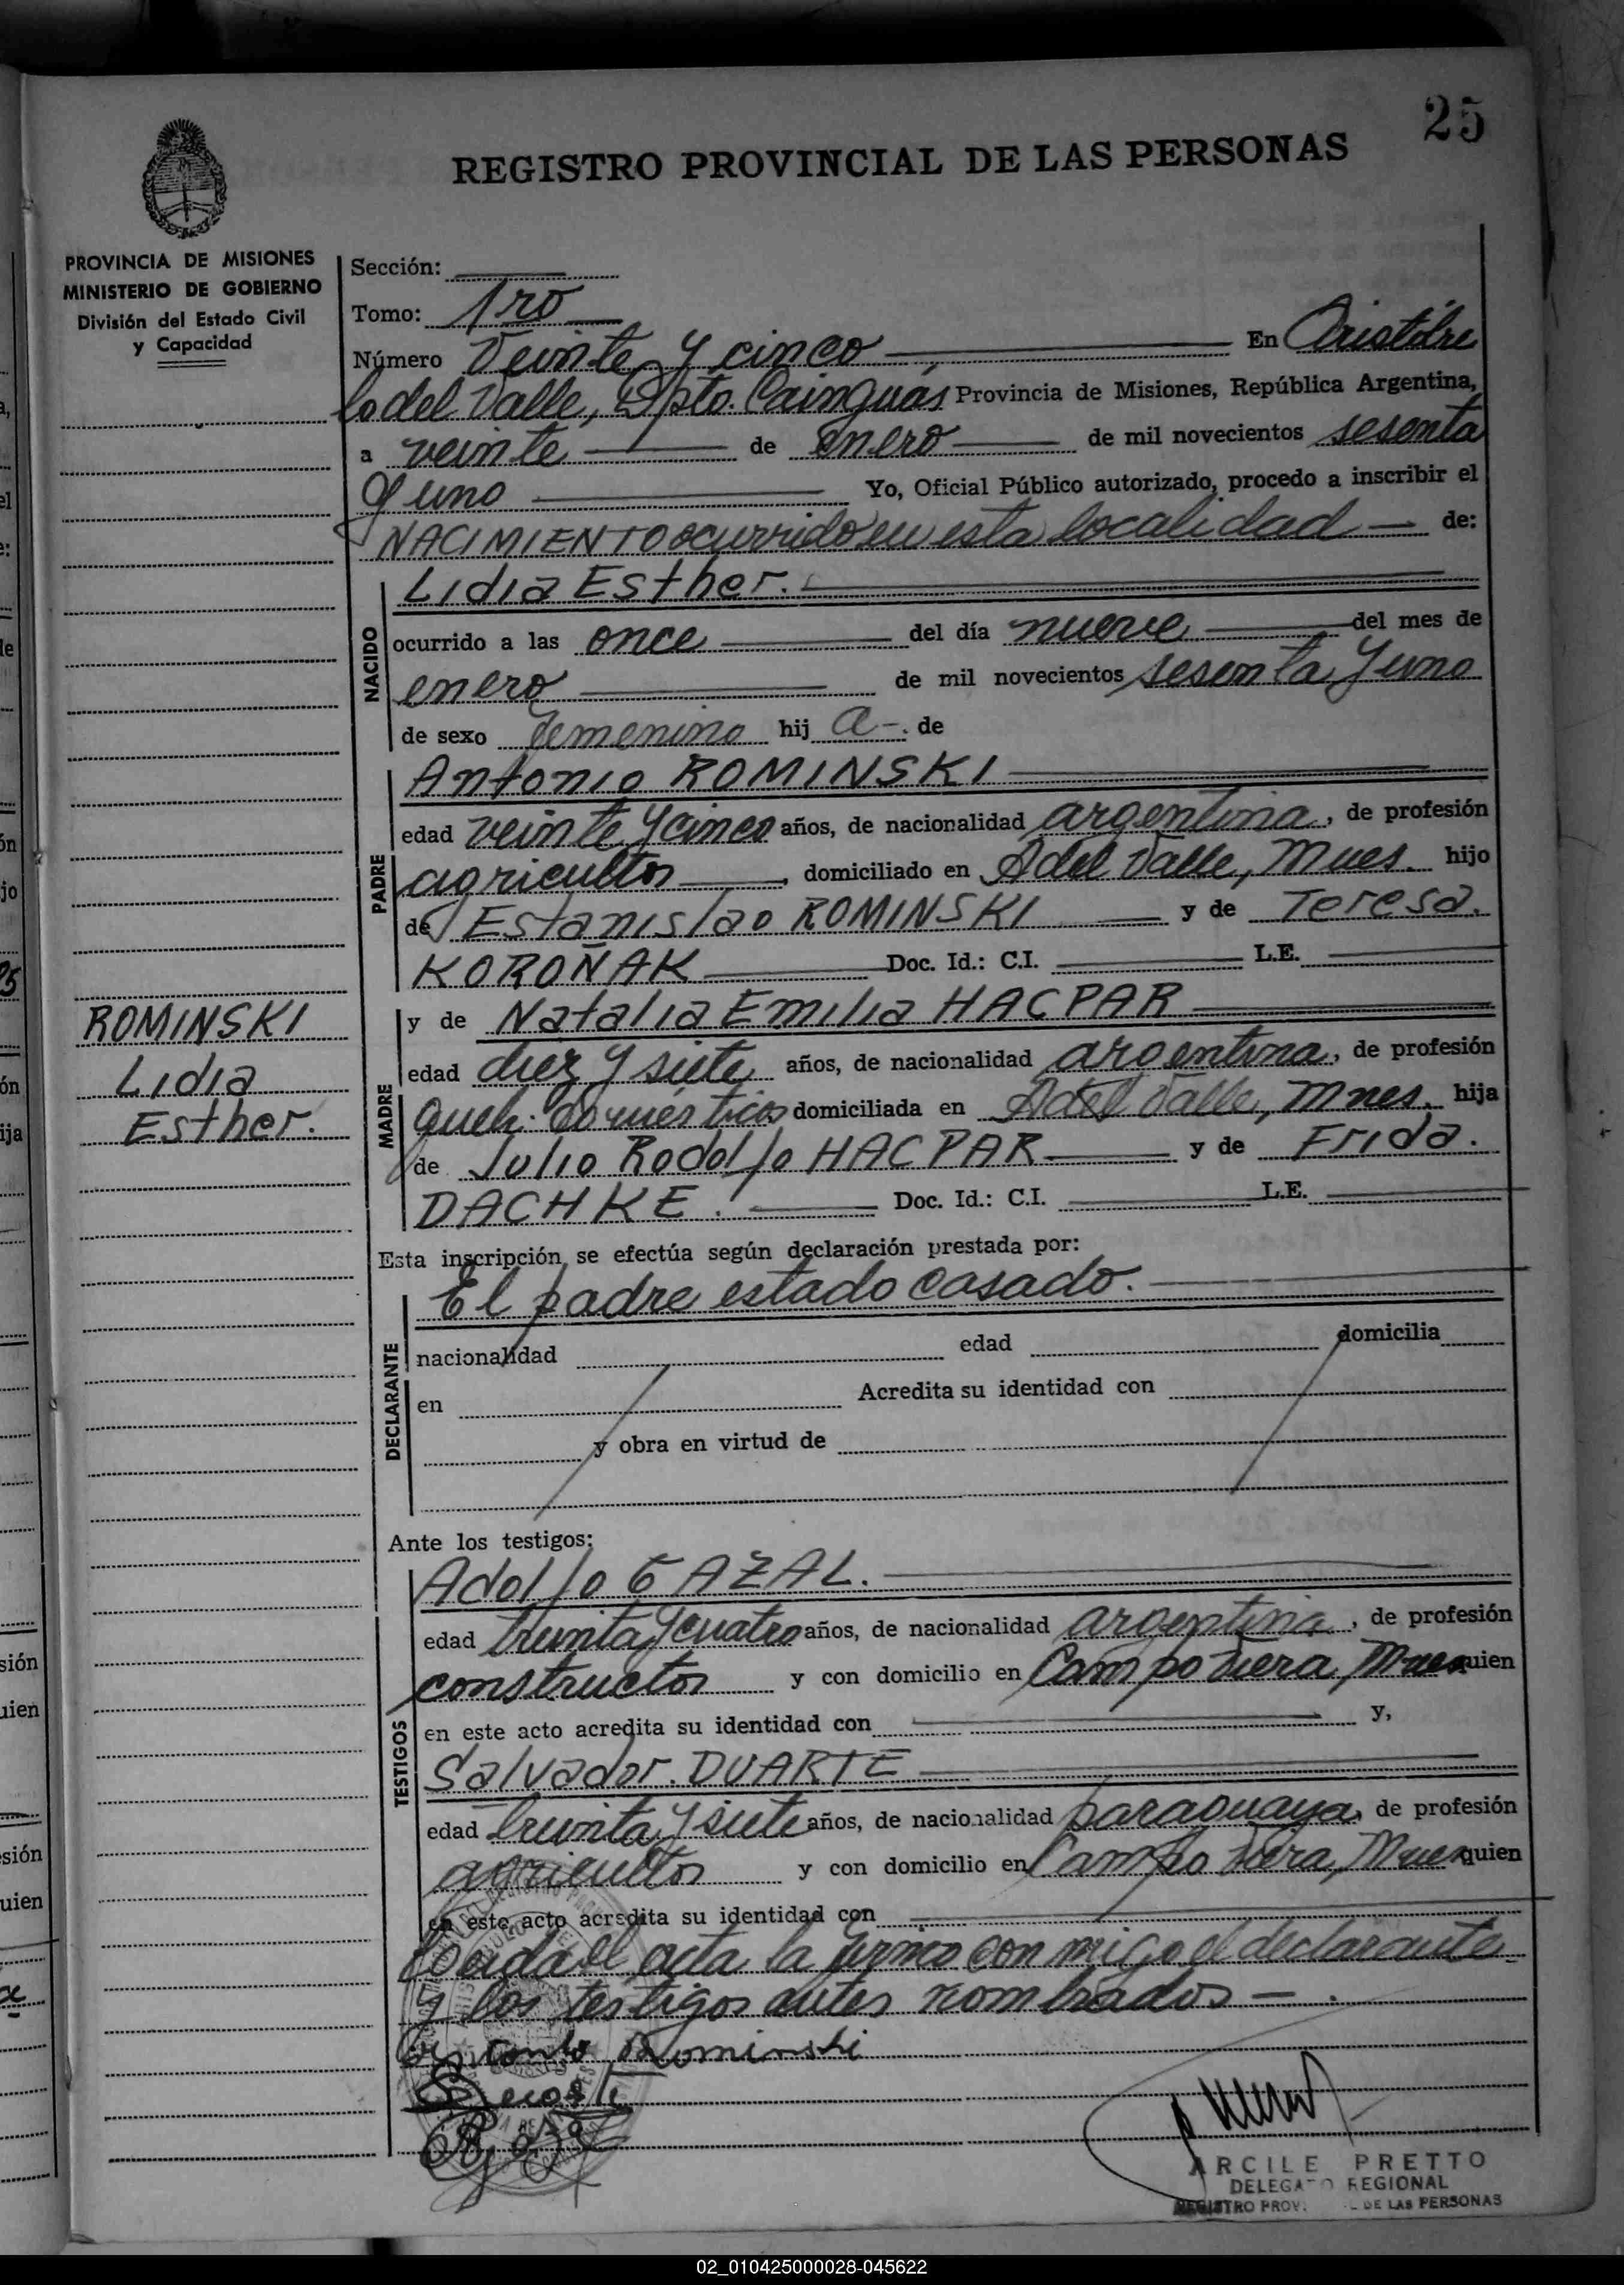 25
REGISTRO PROVINCIAL DE LAS PERSONAS
PROVINCIA DE MISIONES
MINISTERIO DE GOBIERNO
División del Estado Civil
y Capacidad
Sección:
Tomo: 1ro
Número Veinte y cinco En Aristóbu
lo del Valle, Dpto. Cainguás Provincia de Misiones, República Argentina,
a veinte de enero de mil novecientos sesenta
y uno Yo, Oficial Público autorizado, procedo a inscribir el
NACIMIENTO ocurrido en esta localidad de:
NACIDO
Lidia Esther.
ocurrido a las once del día nueve del mes de
enero de mil novecientos sesenta y uno
de sexo femenino hij a de
PADRE
Antonio ROMINSKI
edad veinte y cinco años, de nacionalidad argentina, de profesión
agricultor, domiciliado en A del Valle, Mnes. hijo
de Estanislao ROMINSKI y de Teresa.
KOROÑAK Doc. Id.: C.I. L.E.
ROMINSKI
Lidia
Esther.
MADRE
y de Natalia Emilia HACPAR
edad diez y siete años, de nacionalidad argentina, de profesión
queh. domésticos domiciliada en A del Valle, Mnes. hija
de Julio Rodolfo HACPAR y de Frida.
DACHKE. Doc. Id.: C.I. L.E.
Esta inscripción se efectúa según declaración prestada por:
DECLARANTE
El padre estado casado.
nacionalidad edad domicilia
en Acredita su identidad con
y obra en virtud de
Ante los testigos:
TESTIGOS
Adolfo GAZAL.
edad treinta y cuatro años, de nacionalidad argentina, de profesión
constructor y con domicilio en Campo Viera, Mnes quien
en este acto acredita su identidad con y,
Salvador. DUARTE
edad treinta y siete años, de nacionalidad paraguaya, de profesión
agricultor y con domicilio en Campo Viera, Mnes quien
en este acto acredita su identidad con
Leida el acta la firma con migo el declarante
y los testigos antes nombrados
Antonio Rominski
ARCILE PRETTO
DELEGADO REGIONAL
REGISTRO PROV. DE LAS PERSONAS
02_010425000028-045622